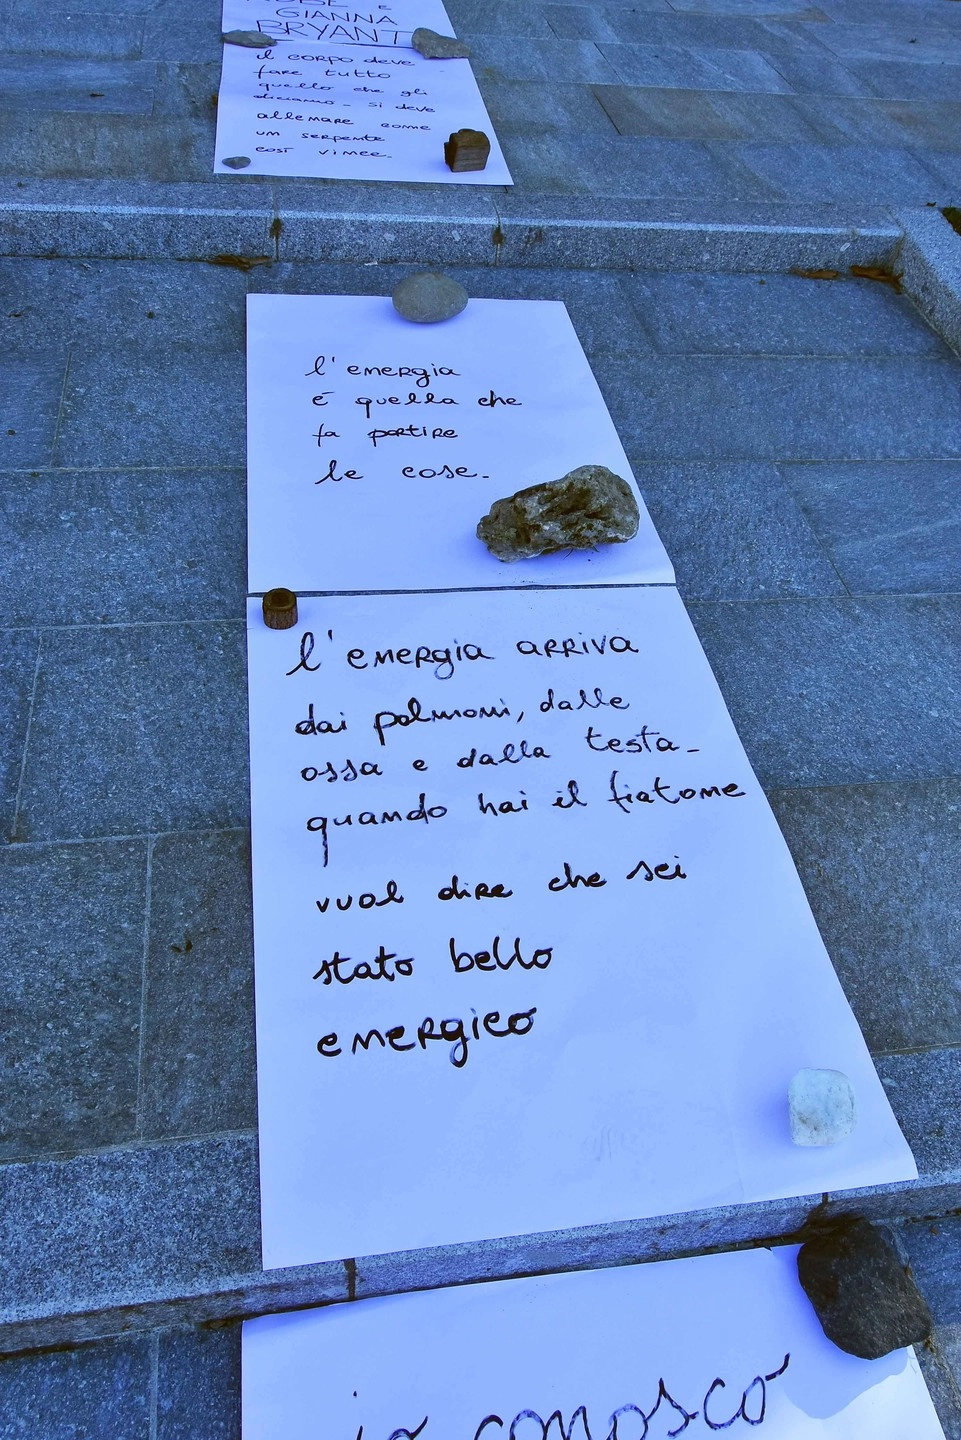 KOBE e
GIANNA
BRYANT
il corpo deve
fare tutto
quello che gli
diciamo - si deve
allenare come
un serpente
così vince.
l'energia
è quella che
fa partire
le cose.
l'energia arriva
dai polmoni, dalle
ossa e dalla testa -
quando hai il fiatone
vuol dire che sei
stato bello
energico
io conosco